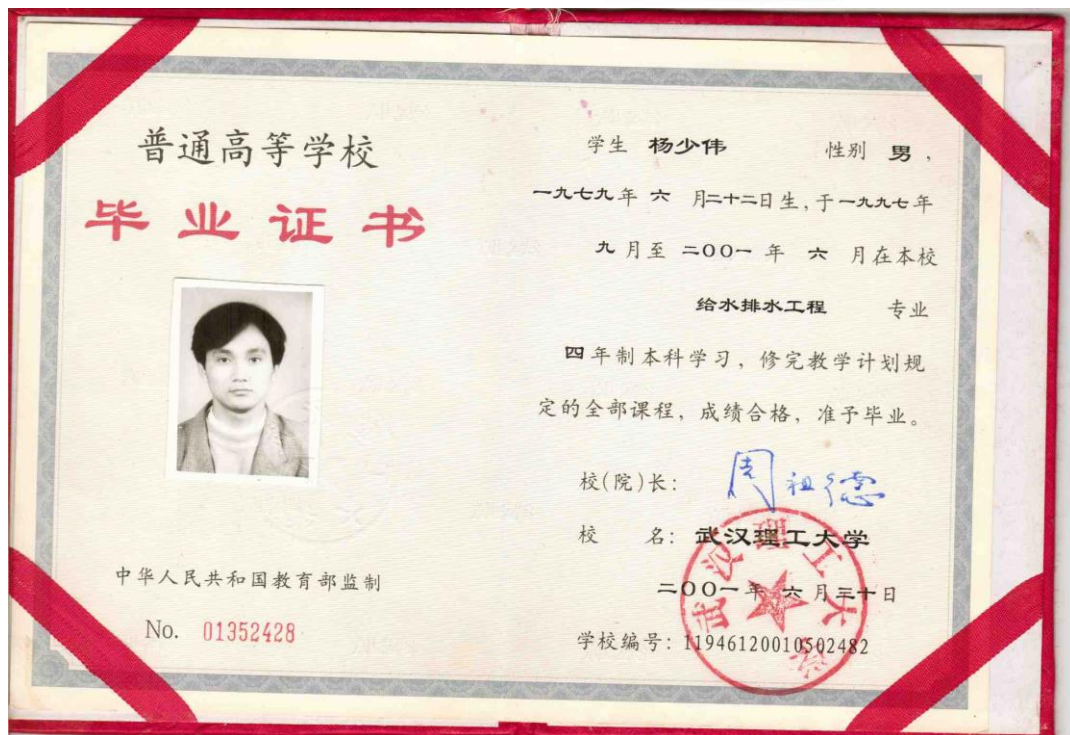 普通高等学校
毕业证书
中华人民共和国教育部监制
No. 01352428
学生 杨少伟 性别 男，
一九七九年 六 月二十二日生，于一九九七年
九 月至 二００一 年 六 月在本校
给水排水工程 专业
四年制本科学习，修完教学计划规
定的全部课程，成绩合格，准予毕业。
校(院)长： 周祖德
校 名：武汉理工大学
二００一年 六 月三十日
学校编号：11946120010502482
武汉理工大学